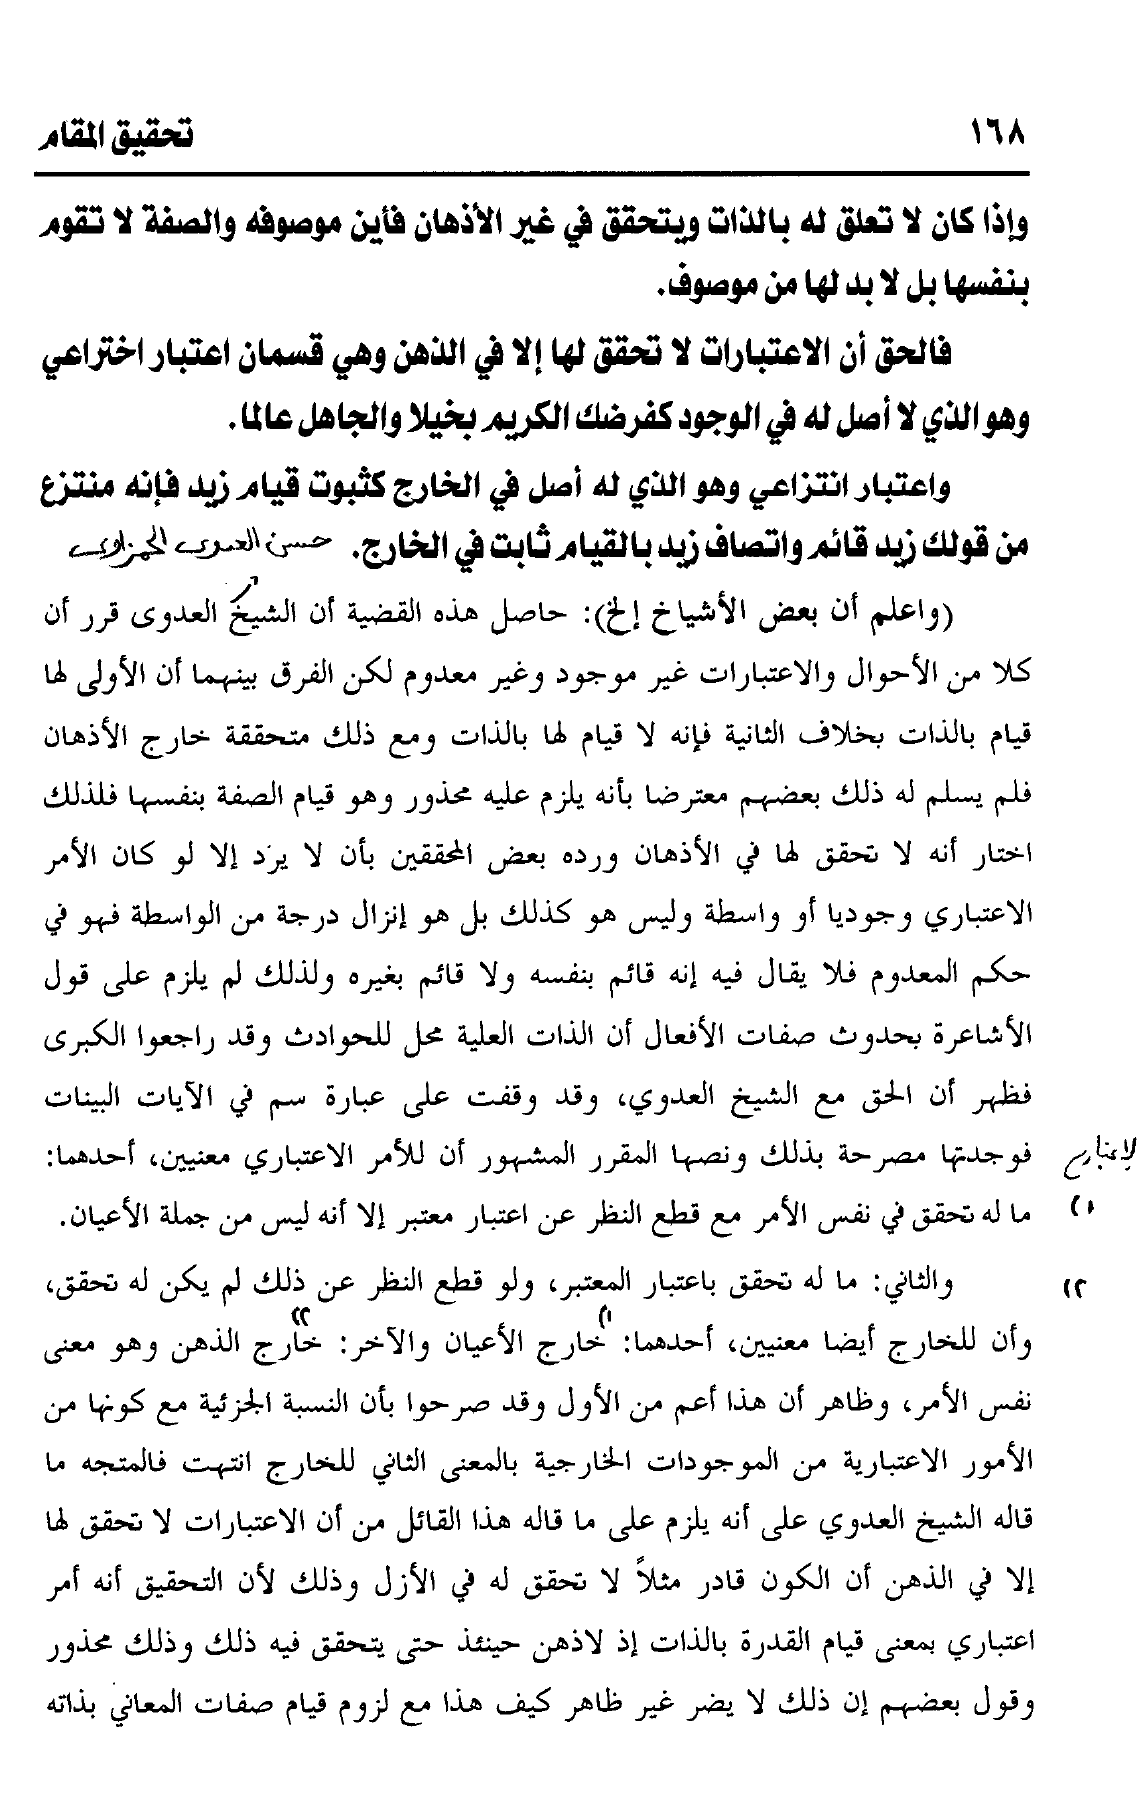 ١٦٨
تحقيق المقام
وإذا كان لا تعلق له بالذات ويتحقق في غير الأذهان فأين موصوفه والصفة لا تقوم
بنفسها بل لا بد لها من موصوف.
فالحق أن الاعتبارات لا تحقق لها إلا في الذهن وهي قسمان اعتبار اختراعي
وهو الذي لا أصل له في الوجود كفرضك الكريم بخيلا والجاهل عالما.
واعتبار انتزاعي وهو الذي له أصل في الخارج كثبوت قيام زيد فإنه منتزع
من قولك زيد قائم واتصاف زيد بالقيام ثابت في الخارج. حسن العدوى الحمزاوي
(واعلم أن بعض الأشياخ إلخ): حاصل هذه القضية أن الشيخ العدوى قرر أن
كلا من الأحوال والاعتبارات غير موجود وغير معدوم لكن الفرق بينهما أن الأولى لها
قيام بالذات بخلاف الثانية فإنه لا قيام لها بالذات ومع ذلك متحققة خارج الأذهان
فلم يسلم له ذلك بعضهم معترضا بأنه يلزم عليه محذور وهو قيام الصفة بنفسها فلذلك
اختار أنه لا تحقق لها في الأذهان ورده بعض المحققين بأن لا يرَد إلا لو كان الأمر
الاعتباري وجوديا أو واسطة وليس هو كذلك بل هو إنزال درجة من الواسطة فهو في
حكم المعدوم فلا يقال فيه إنه قائم بنفسه ولا قائم بغيره ولذلك لم يلزم على قول
الأشاعرة بحدوث صفات الأفعال أن الذات العلية محل للحوادث وقد راجعوا الكبرى
فظهر أن الحق مع الشيخ العدوي، وقد وقفت على عبارة سم في الآيات البينات
فوجدتها مصرحة بذلك ونصها المقرر المشهور أن للأمر الاعتباري معنيين، أحدهما:
ما له تحقق في نفس الأمر مع قطع النظر عن اعتبار معتبر إلا أنه ليس من جملة الأعيان.
١)
والثاني: ما له تحقق باعتبار المعتبر، ولو قطع النظر عن ذلك لم يكن له تحقق،
٢)
وأن للخارج أيضا معنيين، أحدهما: ١) خارج الأعيان والآخر: ٢) خارج الذهن وهو معنى
نفس الأمر، وظاهر أن هذا أعم من الأول وقد صرحوا بأن النسبة الجزئية مع كونها من
الأمور الاعتبارية من الموجودات الخارجية بالمعنى الثاني للخارج انتهت فالمتجه ما
قاله الشيخ العدوي على أنه يلزم على ما قاله هذا القائل من أن الاعتبارات لا تحقق لها
إلا في الذهن أن الكون قادر مثلاً لا تحقق له في الأزل وذلك لأن التحقيق أنه أمر
اعتباري بمعنى قيام القدرة بالذات إذ لاذهن حينئذ حتى يتحقق فيه ذلك وذلك محذور
وقول بعضهم إن ذلك لا يضر غير ظاهر كيف هذا مع لزوم قيام صفات المعاني بذاته